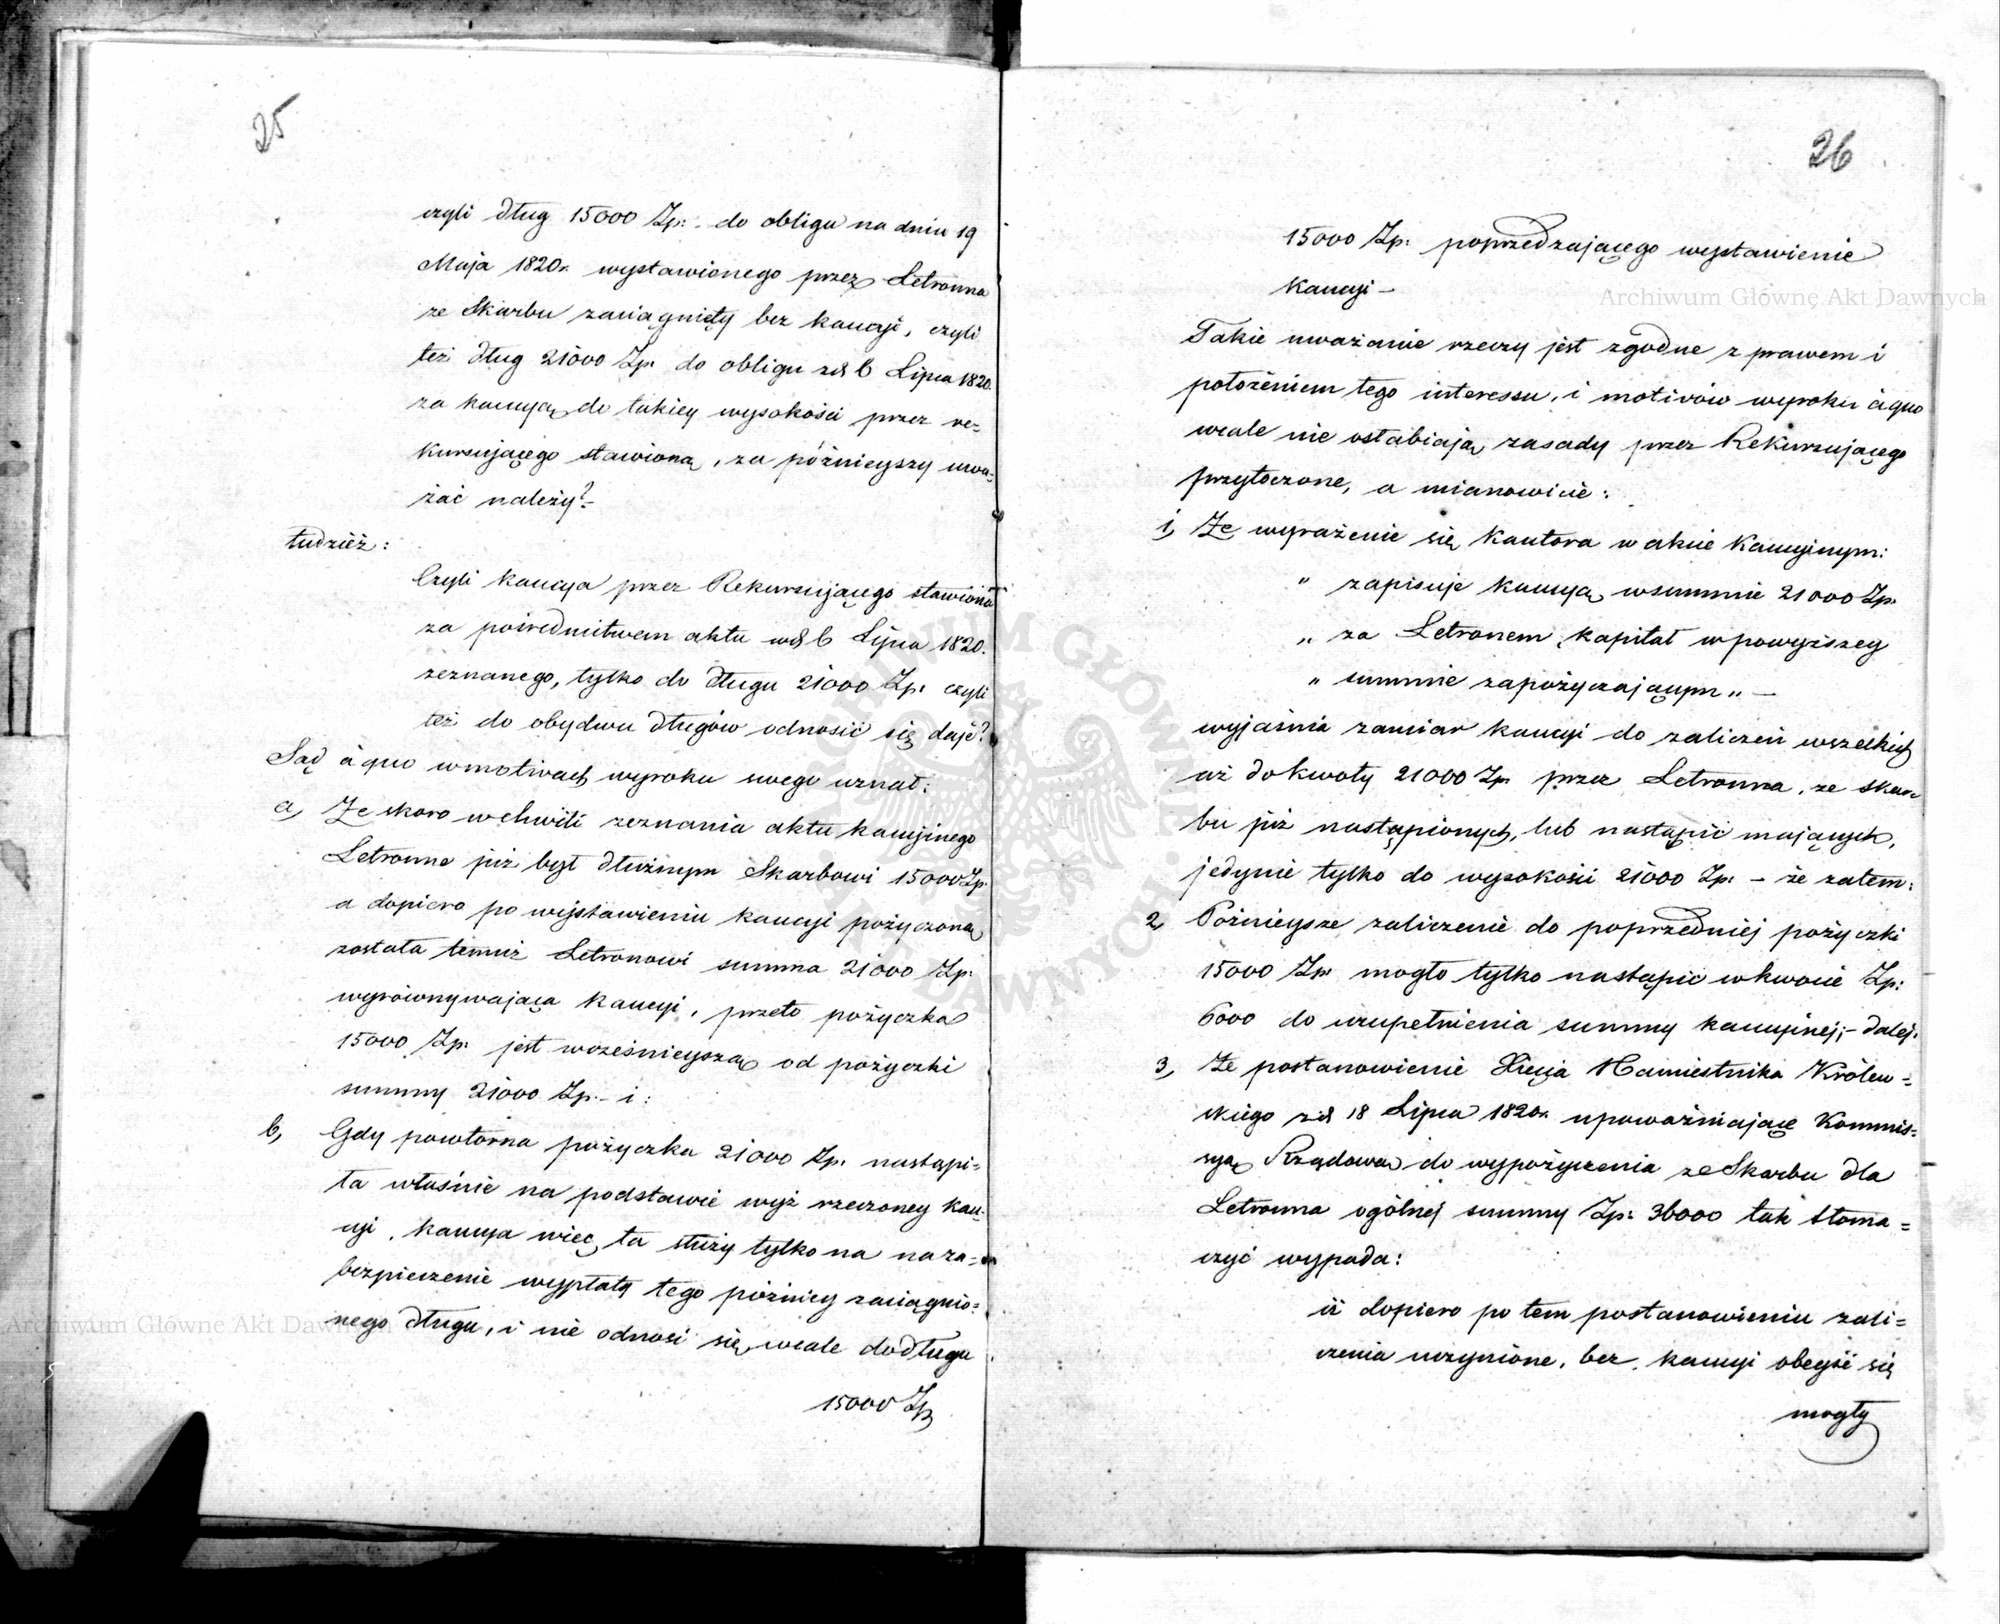 25
czyli dług 15000 Zp: do obligu na dniu 19
Maja 1820r. wystawionego przez Letronna
ze Skarbu zaciągnięty bez kaucyi, czyli
też dług 21000 Zp. do obligu z d. 6 Lipca 1820.
za kaucyą do takiey wysokości przez re=
kursującego stawioną, za późnieyszy uwa=
żać należy?-
tudzież:
Czyli kaucya przez Rekursującego stawiona
za pośrednitwem aktu w d. 6 Lipca 1820.
zeznanego, tylko do długu 21000 Zp. czyli
też do obydwu długów odnosić się daje?
Sąd à quo w motivach wyroku swego uznał:
a, Że skoro w chwili zeznania aktu kaucyinego
Letronne już był dłużnym Skarbowi 15000 Zp.
a dopiero po wystawieniu kaucyi pożyczoną
została temuż Letronowi summa 21000 Zp.
wyrównywająca kaucyi, przeto pożyczka
15000 Zp. jest wcześnieyszą od pożyczki
summy 21000 Zp. - i:
b, Gdy powtórna pożyczka 21000 Zp. nastąpi=
ła właśnie na podstawie wyż rzeczoney kau=
cyi, kaucya więc ta służy tylko na na za=
bezpieczenie wypłaty tego późniey zaciągnio=
nego długu, i nie odnosi się wcale do długu
15000 Zp.
26
15000 Zp: poprzedzającego wystawienie
kaucyi -
Takie uważanie rzeczy jest zgodne z prawem i
położeniem tego interessu, i motivów wyroku à quo
wcale nie osłabiają zasady przez Rekursującego
przytoczone, a mianowicie:
1, Że wyrażenie się Kautora w akcie Kaucyinym:
" zapisuje kaucyą w summie 21000 Zp.
" za Letronem, kapitał w powyższey
" summie zapożyczającym " -
wyjaśnia zamiar kaucyi do zaliczeń wszelkich
aż do kwoty 21000 Zp. przez Letronna, ze skar=
bu już nastąpionych, lub nastąpić mających,
jedynie tylko do wysokości 21000 Zp. - że zatem:
2, Poźnieysze zaliczenie do poprzedniej pożyczki
15000 Zp. mogło tylko nastąpić w kwocie Zp:
6000 do uzupełnienia summy kaucyinej; - dalej:
3, Że postanowienie Xięcia Namiestnika Królew=
skiego z d. 18 Lipca 1820r. upoważniające Kommis=
syą Rządową do wypożyczenia ze Skarbu dla
Letronna ogólnej summy Zp: 36000 tak tłoma=
czyć wypada:
iż dopiero po tem postanowieniu zali=
czenia uczynione, bez kaucyi obeyść się
mogły
Archiwum Główne Akt Dawnych
Archiwum Główne Akt Dawnych
ARCHIWUM GŁÓWNE AKT DAWNYCH